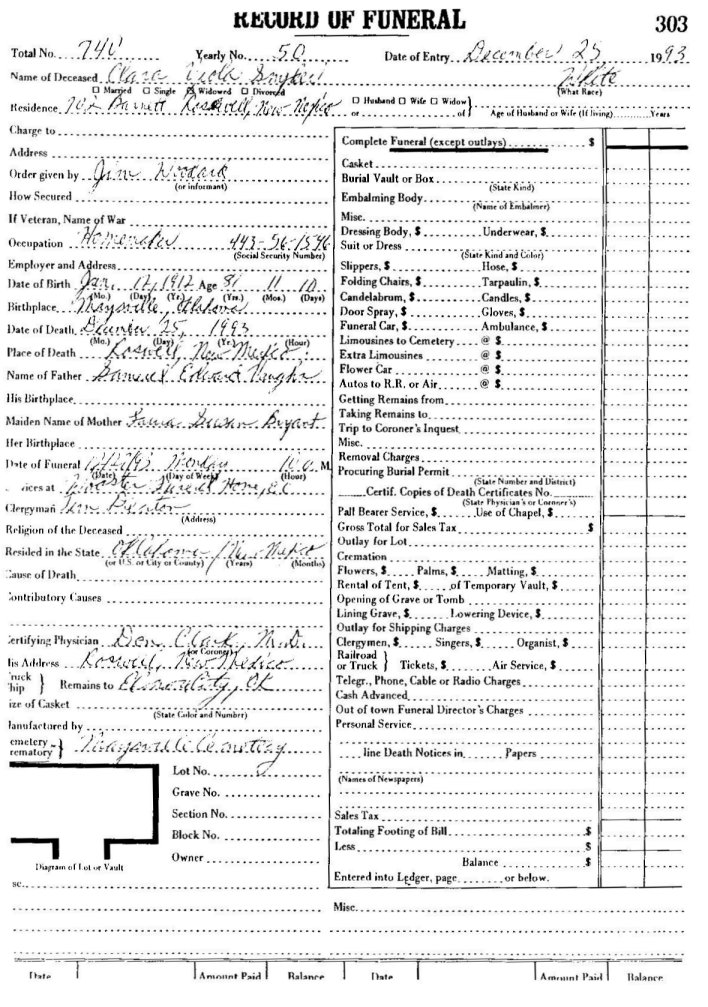 RECORD OF FUNERAL
303
Total No. 740 Yearly No. 50 Date of Entry December 25, 1993
Name of Deceased Clara Viola Snyder White
☐ Married ☐ Single ☒ Widowed ☐ Divorced (What Race)
Residence 702 Barnett Roswell, New Mexico ☐ Husband ☐ Wife ☐ Widow } or of Age of Husband or Wife (If living) Years
Charge to
Address
Order given by Jim Woodard
(or informant)
How Secured
If Veteran, Name of War
Occupation Homemaker 443-56-1546
(Social Security Number)
Employer and Address
Date of Birth Jan. 12, 1912 Age 81 11 10
(Mo.) (Day) (Yr.) (Yrs.) (Mos.) (Days)
Birthplace Maysville, Oklahoma
Date of Death December 25, 1993
(Mo.) (Day) (Yr.) (Hour)
Place of Death Roswell, New Mexico
Name of Father Samuel Edward Vaughn
His Birthplace
Maiden Name of Mother Susan Bryant
Her Birthplace
Date of Funeral 12/27/93 Monday 10:0 M
(Date) (Day of Week) (Hour)
vices at Wooster Funeral Home, E.C.
Clergyman Jim
(Address)
Religion of the Deceased
Resided in the State Oklahoma / New Mexico
(or U.S. or City or County) (Years) (Months)
Cause of Death
Contributory Causes
ertifying Physician Don Clark, M.D.
(or Coroner)
lis Address Roswell, New Mexico
ruck
hip } Remains to Elmore City, OK
ize of Casket
(State Color and Number)
lanufactured by
emetery
rematory } Maysville Cemetery
Lot No.
Grave No.
Section No.
Block No.
Owner
Diagram of Lot or Vault
se
Complete Funeral (except outlays) $
Casket
Burial Vault or Box
(State Kind)
Embalming Body
(Name of Embalmer)
Misc.
Dressing Body, $ Underwear, $
Suit or Dress
(State Kind and Color)
Slippers, $ Hose, $
Folding Chairs, $ Tarpaulin, $
Candelabrum, $ Candles, $
Door Spray, $ Gloves, $
Funeral Car, $ Ambulance, $
Limousines to Cemetery @ $
Extra Limousines @ $
Flower Car @ $
Autos to R.R. or Air @ $
Getting Remains from
Taking Remains to
Trip to Coroner's Inquest
Misc.
Removal Charges
Procuring Burial Permit
(State Number and District)
Certif. Copies of Death Certificates No.
(State Physician's or Coroner's)
Pall Bearer Service, $ Use of Chapel, $
Gross Total for Sales Tax $
Outlay for Lot
Cremation
Flowers, $ Palms, $ Matting, $
Rental of Tent, $ of Temporary Vault, $
Opening of Grave or Tomb
Lining Grave, $ Lowering Device, $
Outlay for Shipping Charges
Clergymen, $ Singers, $ Organist, $
Railroad
or Truck } Tickets, $ Air Service, $
Telegr., Phone, Cable or Radio Charges
Cash Advanced
Out of town Funeral Director's Charges
Personal Service
line Death Notices in Papers
(Names of Newspapers)
Sales Tax
Totaling Footing of Bill $
Less $
Balance $
Entered into Ledger, page or below.
Misc.
Date Amount Paid Balance Date Amount Paid Balance